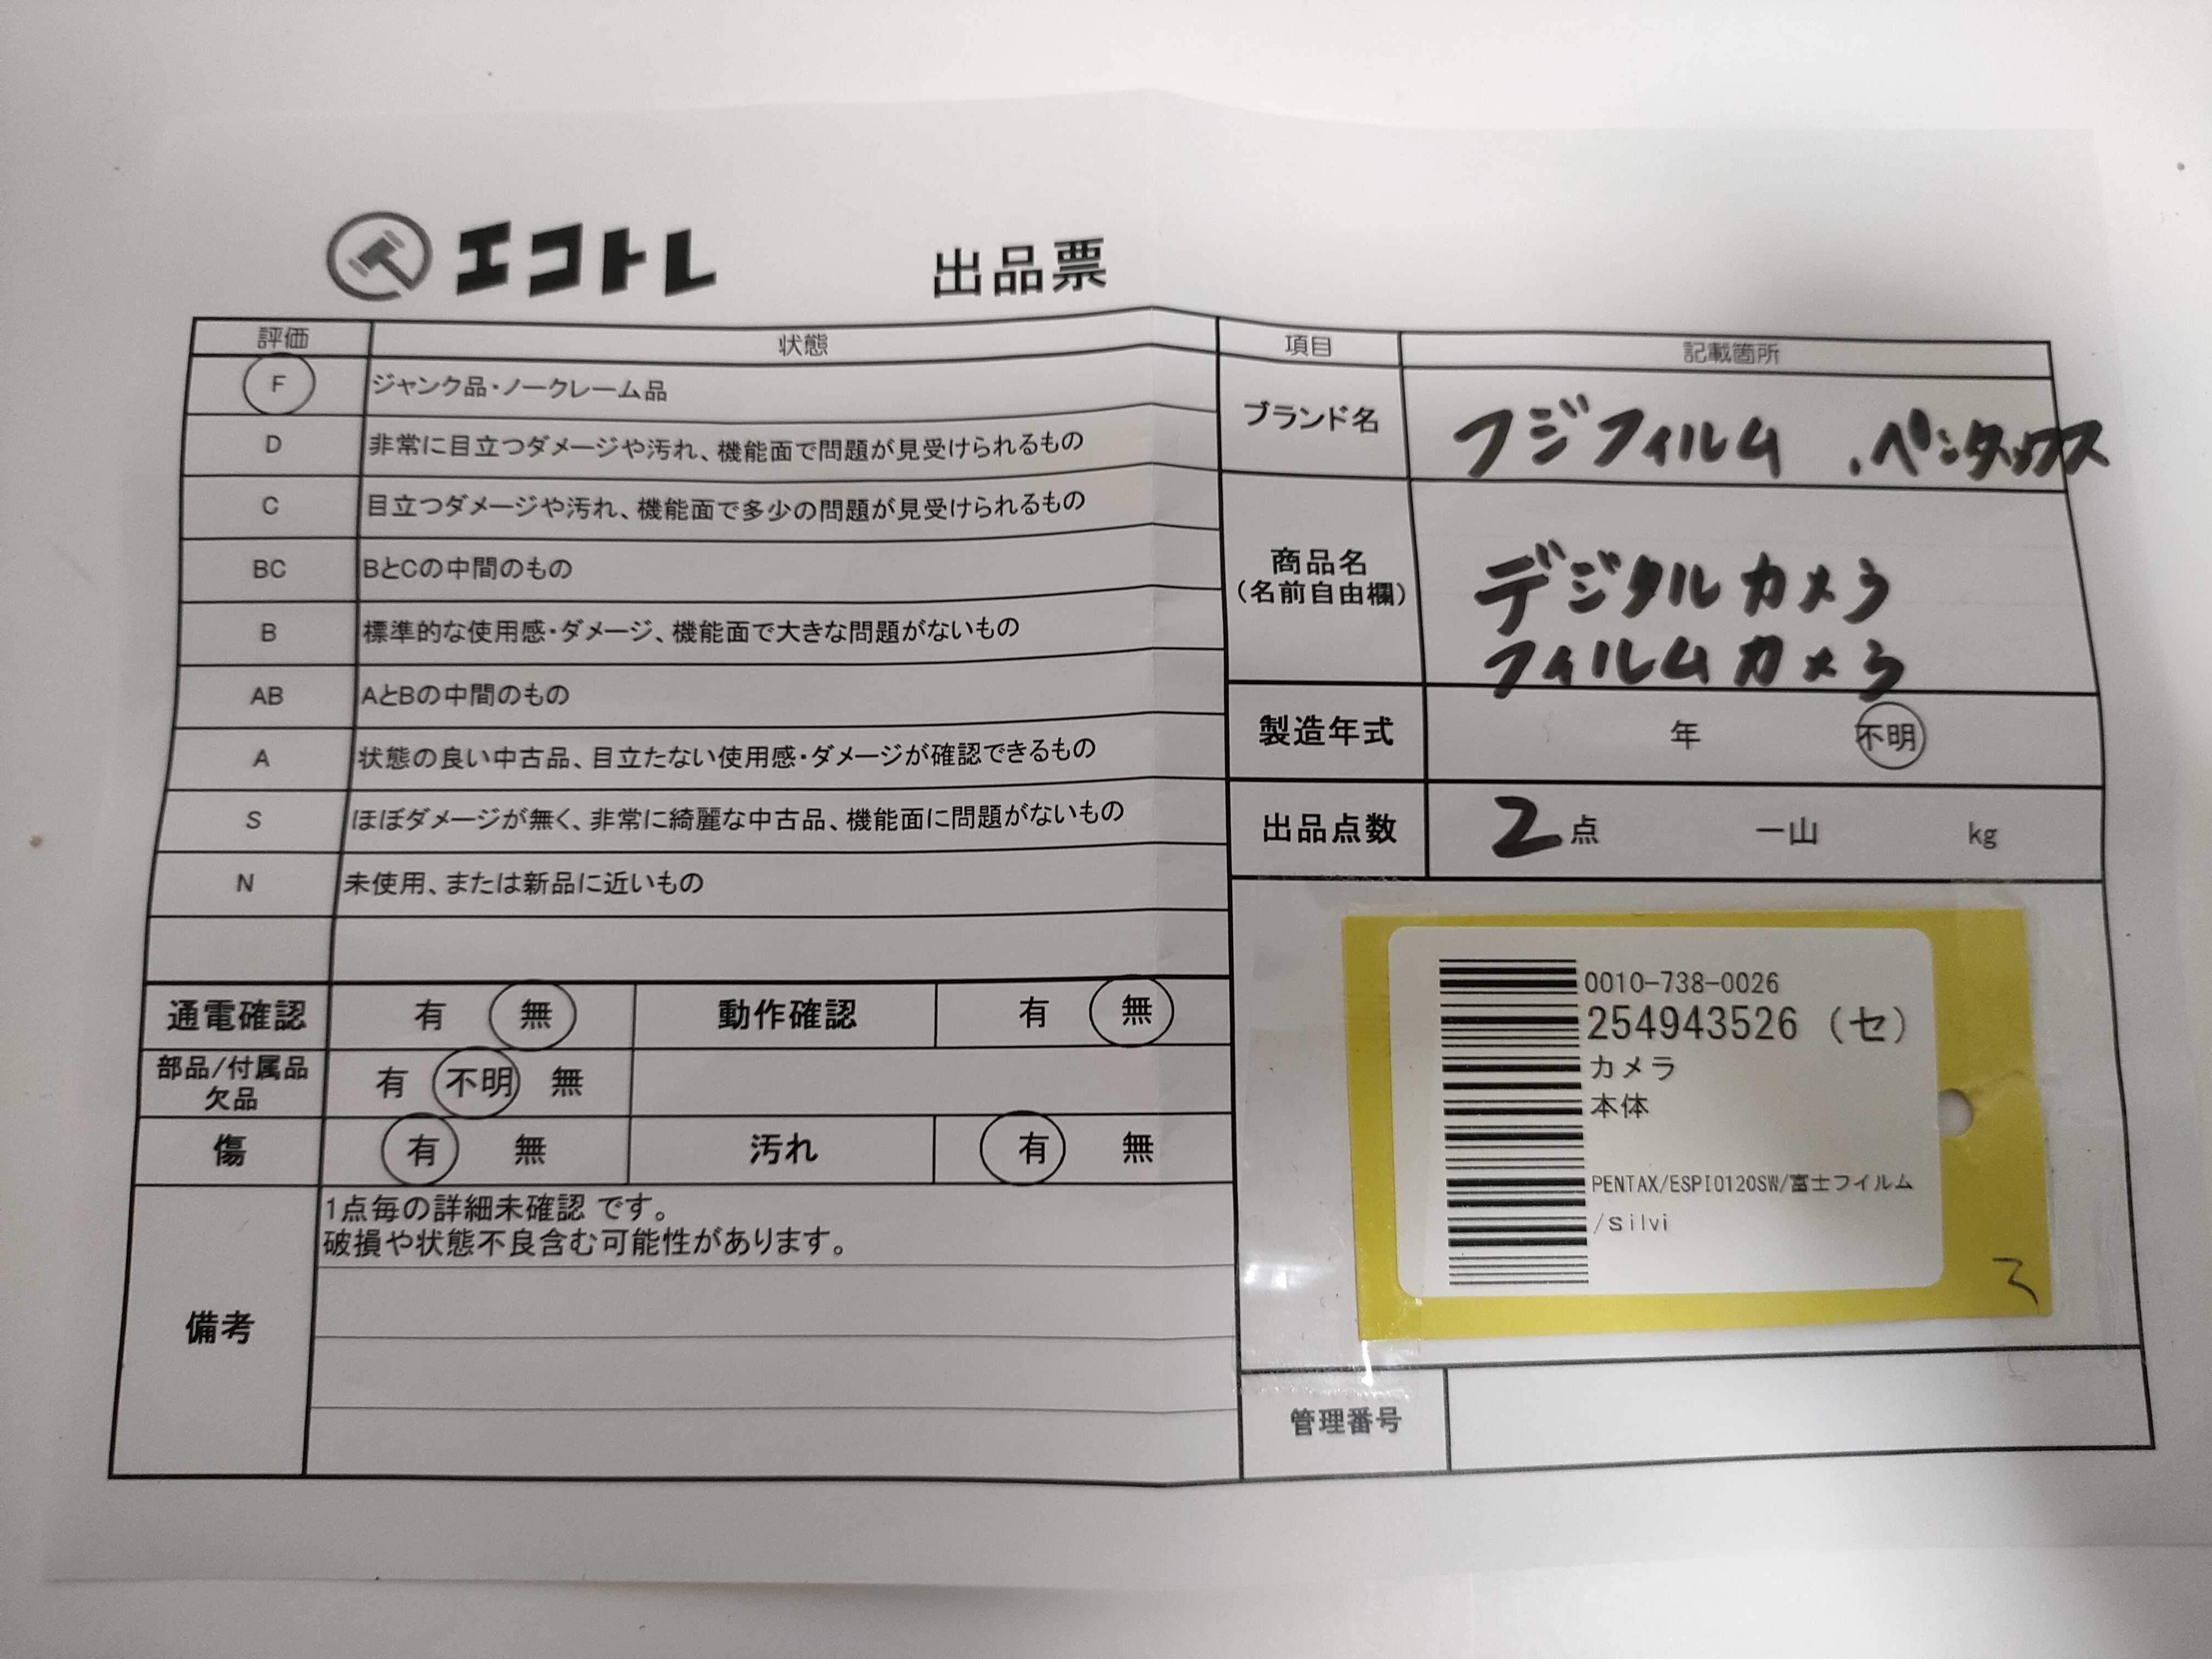 エコトレ 出品票
評価 状態
F ジャンク品・ノークレーム品
D 非常に目立つダメージや汚れ、機能面で問題が見受けられるもの
C 目立つダメージや汚れ、機能面で多少の問題が見受けられるもの
BC BとCの中間のもの
B 標準的な使用感・ダメージ、機能面で大きな問題がないもの
AB AとBの中間のもの
A 状態の良い中古品、目立たない使用感・ダメージが確認できるもの
S ほぼダメージが無く、非常に綺麗な中古品、機能面に問題がないもの
N 未使用、または新品に近いもの
通電確認 有 無 動作確認 有 無
部品/付属品
欠品
有 不明 無
傷 有 無 汚れ 有 無
備考
1点毎の詳細未確認 です。
破損や状態不良含む可能性があります。
項目 記載箇所
ブランド名 フジフィルム 、ペンタックス
商品名
(名前自由欄)
デジタルカメラ
フィルムカメラ
製造年式 年 不明
出品点数 2点 一山 kg
0010-738-0026
254943526 (セ)
カメラ
本体
PENTAX/ESPIO120SW/富士フイルム
/Silvi
ろ
管理番号